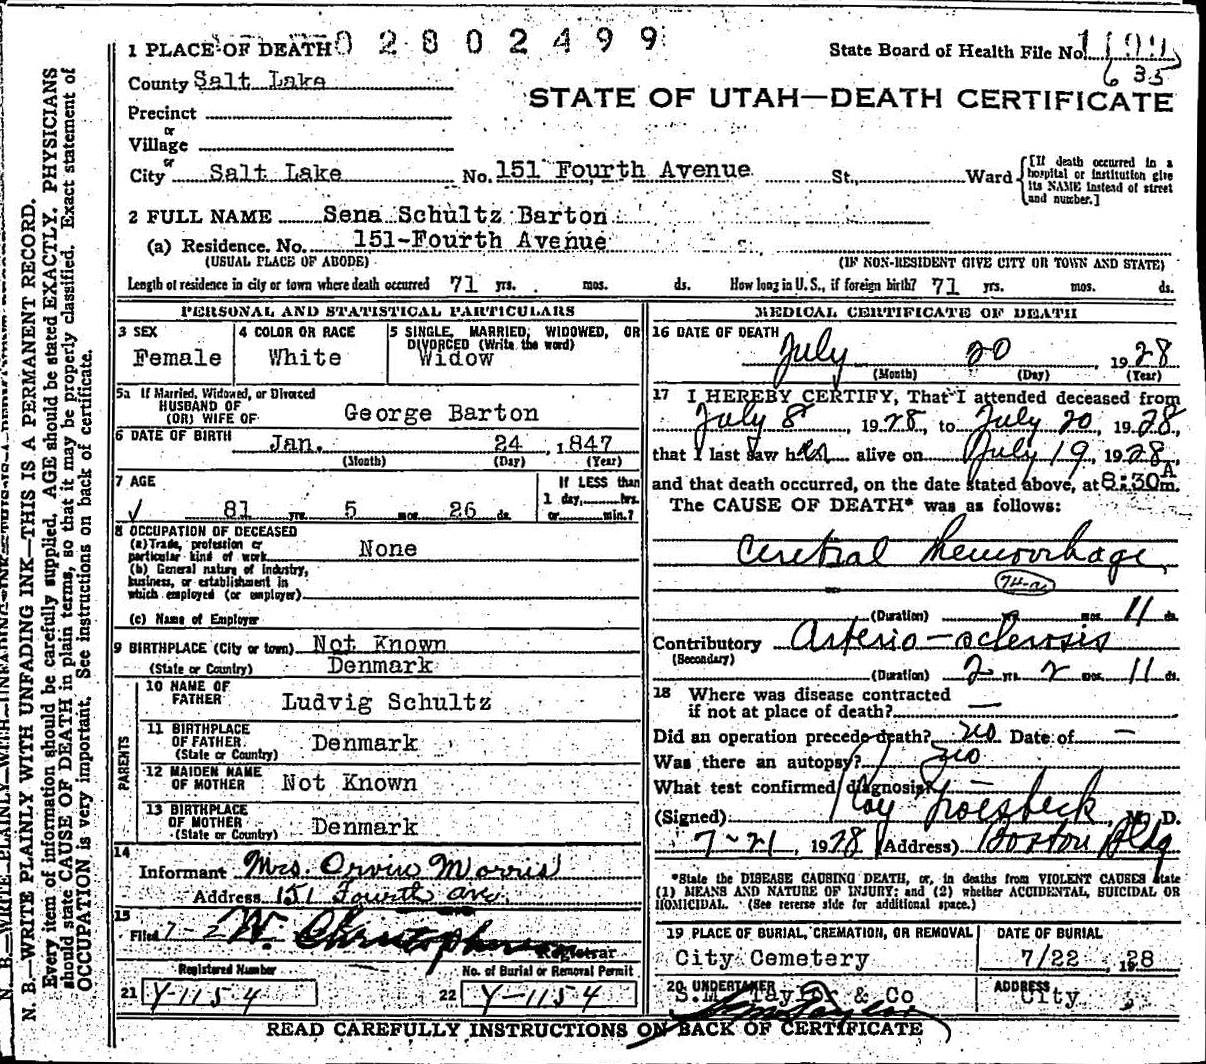 1 PLACE OF DEATH 0 2 8 0 2 4 9 9
State Board of Health File No. 1199
635
County Salt Lake
STATE OF UTAH—DEATH CERTIFICATE
Precinct
or
Village
or
City Salt Lake No. 151 Fourth Avenue St., Ward
[If death occurred in a
hospital or institution give
its NAME instead of street
and number.]
2 FULL NAME Sena Schultz Barton
(a) Residence. No. 151-Fourth Avenue
(USUAL PLACE OF ABODE) (IF NON-RESIDENT GIVE CITY OR TOWN AND STATE)
Length of residence in city or town where death occurred 71 yrs. mos. ds. How long in U. S., if foreign birth? 71 yrs. mos. ds.
PERSONAL AND STATISTICAL PARTICULARS
3 SEX
Female
4 COLOR OR RACE
White
5 SINGLE, MARRIED, WIDOWED, OR
DIVORCED (Write the word)
Widow
5a If Married, Widowed, or Divorced
HUSBAND OF
(OR) WIFE OF George Barton
6 DATE OF BIRTH Jan. 24, 1847
(Month) (Day) (Year)
7 AGE
81 yrs. 5 mos. 26 ds.
If LESS than
1 day, hrs.
or min.?
8 OCCUPATION OF DECEASED
(a) Trade, profession or
particular kind of work None
(b) General nature of industry,
business, or establishment in
which employed (or employer)
(c) Name of Employer
9 BIRTHPLACE (City or town) Not Known
(State or Country) Denmark
PARENTS
10 NAME OF
FATHER Ludvig Schultz
11 BIRTHPLACE
OF FATHER
(State or Country) Denmark
12 MAIDEN NAME
OF MOTHER Not Known
13 BIRTHPLACE
OF MOTHER
(State or Country) Denmark
14
Informant Mrs. Orvin Morris
Address 151 Fourth ave.
15
Filed 7-2 W. Christopherson
Registrar
Registered Number
21 Y-1154
No. of Burial or Removal Permit
22 Y-1154
MEDICAL CERTIFICATE OF DEATH
16 DATE OF DEATH
July 20, 1928
(Month) (Day) (Year)
17 I HEREBY CERTIFY, That I attended deceased from
July 8, 1928, to July 20, 1928,
that I last saw her alive on July 19, 1928,
and that death occurred, on the date stated above, at 8:30 A m.
The CAUSE OF DEATH* was as follows:
Cerebral hemorrhage
74-a
(Duration) yrs. mos. 11 ds.
Contributory Arterio-sclerosis
(Secondary)
(Duration) 2 yrs. 2 mos. 11 ds.
18 Where was disease contracted
if not at place of death? —
Did an operation precede death? no Date of —
Was there an autopsy? no
What test confirmed diagnosis? —
(Signed) Roy Groesbeck, M. D.
7-21, 1928 (Address) Boston Bldg
*State the DISEASE CAUSING DEATH, or, in deaths from VIOLENT CAUSES state
(1) MEANS AND NATURE OF INJURY; and (2) whether ACCIDENTAL, SUICIDAL OR
HOMICIDAL. (See reverse side for additional space.)
19 PLACE OF BURIAL, CREMATION, OR REMOVAL
City Cemetery
DATE OF BURIAL
7/22, 1928
20 UNDERTAKER
S.M. Taylor & Co
ADDRESS
City
READ CAREFULLY INSTRUCTIONS ON BACK OF CERTIFICATE
N. B.—WRITE PLAINLY WITH UNFADING INK—THIS IS A PERMANENT RECORD.
Every item of information should be carefully supplied. AGE should be stated EXACTLY. PHYSICIANS
should state CAUSE OF DEATH in plain terms, so that it may be properly classified. Exact statement of
OCCUPATION is very important. See instructions on back of certificate.